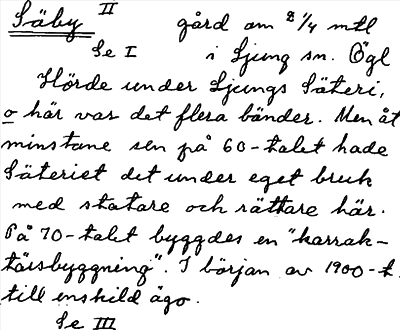 Säby II gård om 2 1/4 mtl
Se I i Ljung sn. Ögl
Hörde under Ljungs Säteri,
o här var det flera bönder. Men åt
minstone sen på 60-talet hade
Säteriet det under eget bruk
med statare och rättare här.
På 70-talet byggdes en "karrak-
tärsbyggning". I början av 1900-t.
till enskild ägo.
Se III